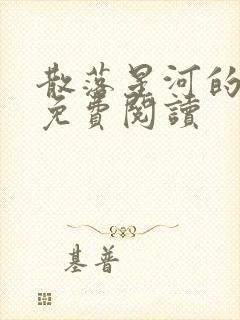 散落星河的
免費閱讀
基普